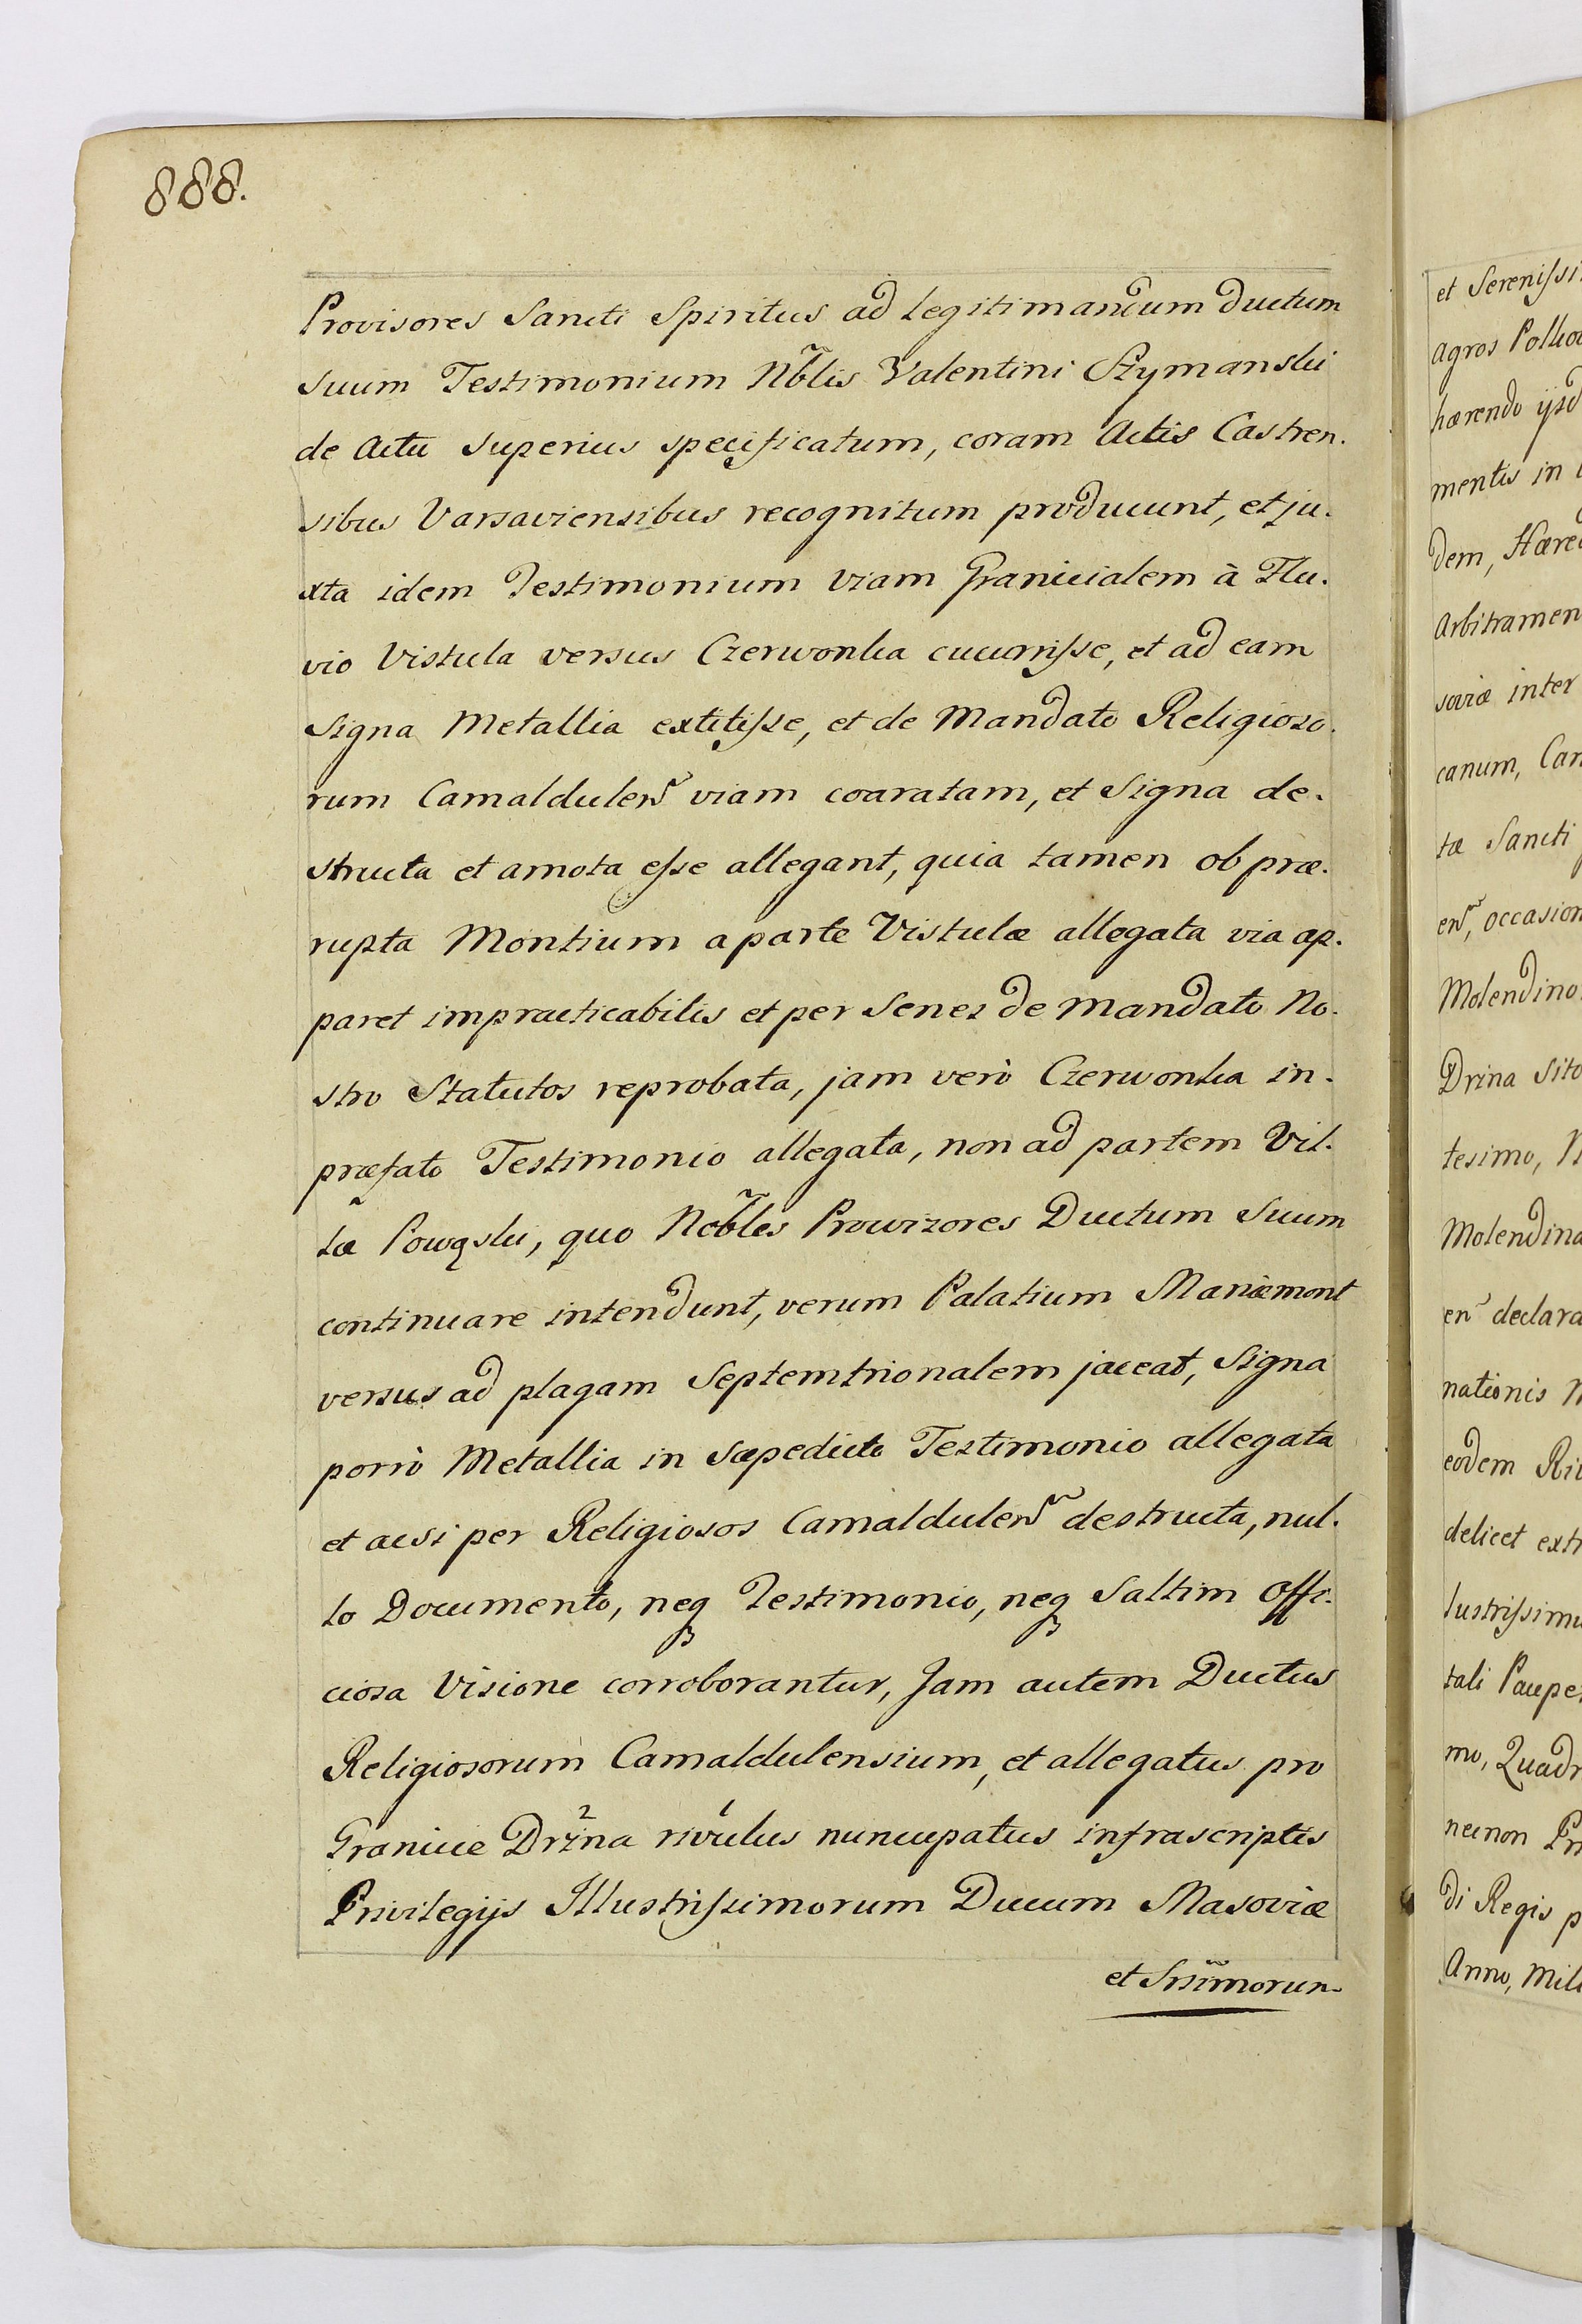 888.
Provisores Sancti Spiritus ad legitimandum Ductum
suum Testimonium Nb̃lis Valentini Szymanski
de Actu superius specificatum, coram Actis Castren.
sibus Varsaviensibus recognitum producunt, et ju.
xta idem Testimonium viam Granicialem à Flu.
vio Vistula versus Czerwonka cucurriſse, et ad eam
Signa Metallia extitiſse, et de Mandato Religioso.
rum Camaldulen̄ viam coaratam, et Signa de.
structa et amota eſse allegant, quia tamen ob præ.
rupta Montium a parte Vistulæ allegata via ap.
paret impracticabilis et per Senes de Mandato No.
stro Statutos reprobata, jam verò Czerwonka in.
præfato Testimonio allegata, non ad partem Vil.
læ Powązki, quo Nob̃les Prowizores Ductum Suum
continuare intendunt, verum Palatium Mariæmont
versus ad plagam Septemtrionalem jaceat, Signa
porrò Metallia in sæpedicto Testimonio allegata
et acsi per Religiosos Camaldulen̄ destructa, nul.
lo Documento, neqꝫ Testimonio, neqꝫ Saltim Offi.
ciosa Visione corroborantur, Jam autem Ductus
Religiosorum Camaldulensium, et allegatus pro
Granicie Drzna rivulus nuncupatus infrascriptis
Privilegijs Illustriſsimorum Ducum Masoviæ
et Srisim̃orum
et Sereniſsi
agros Polko
hærendo ijsd
mentis in
dem, Hæred
Arbitramen
soviæ inter
canum, Can
tæ Sancti
en̄, occasion
Molendino
Drzna Sito
tesimo, N
Molendina
en̄ declara
nationis
eodem Ri
delicet ext
lustriſsimu
tali Paupe
mo, Quadr
necnon Pri
di Regis p
Anno, Mill